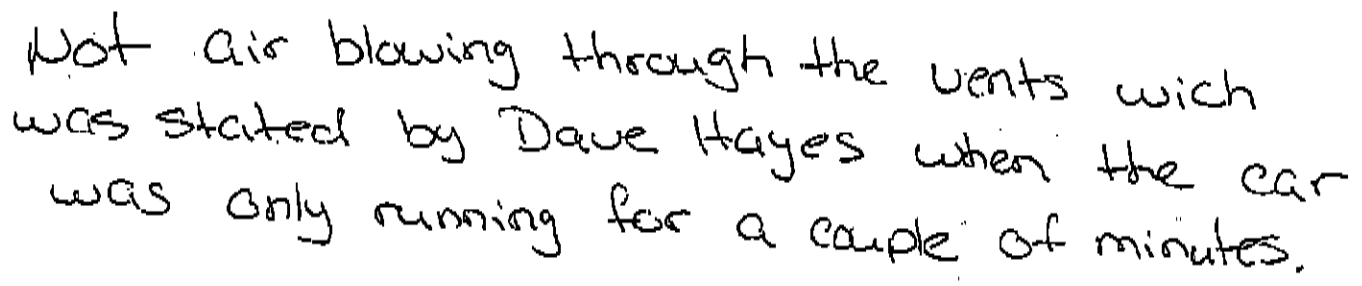 Not air blowing through the vents wich
was stated by Dave Hayes when the car
was only running for a couple of minutes.